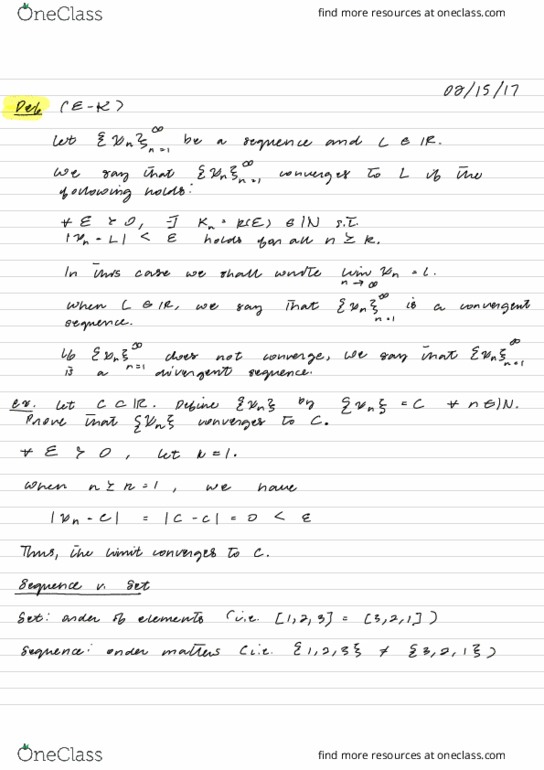 OneClass
find more resources at oneclass.com
02/15/17
Def (ε-K)
Let {xₙ}ₙ₌₁^∞ be a sequence and L ∈ ℝ.
We say that {xₙ}ₙ₌₁^∞ converges to L if the
following holds:
∀ ε > 0, ∃ Kₙ = K(ε) ∈ ℕ s.t.
|xₙ - L| < ε holds for all n ≥ K.
In this case we shall write lim n→∞ xₙ = L.
When L ∈ ℝ, we say that {xₙ}ₙ₌₁^∞ is a convergent
sequence.
If {xₙ}ₙ₌₁^∞ does not converge, we say that {xₙ}ₙ₌₁^∞
is a divergent sequence.
Ex. Let C ⊂ ℝ. Define {xₙ} by {xₙ} = C ∀ n ∈ ℕ.
Prove that {xₙ} converges to C.
∀ ε > 0, let K = 1.
When n ≥ K = 1, we have
|xₙ - C| = |C - C| = 0 < ε
Thus, the limit converges to C.
Sequence v. Set
Set: order of elements (i.e. [1,2,3] = [3,2,1])
Sequence: order matters (i.e. {1,2,3} ≠ {3,2,1})
OneClass
find more resources at oneclass.com